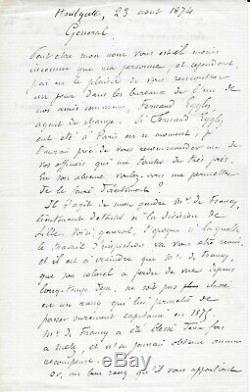 Houlgate, 23 août 1874
Général,
Peut être mon nom vous est-il moins
inconnu que ma personne et cependant
j'ai eu le plaisir de vous rencontrer
un jour dans les bureaux de l'un de
nos amis communs, Fernand
agent de change. Si Fernand
eut été à Paris en ce moment, je
l'aurais prié de vous recommander un de
vos officiers qui me touche de très près.
En son absence voulez vous me permettre
de le faire directement ?
Il s'agit de mon gendre Mr. de Francy,
lieutenant à la division de
Lille. Voici, général, l'époque à laquelle
le travail d'inspection va vous être remis
et il est à craindre que Mr. de Francy,
que son colonel a perdu de vue depuis
longtemps, ne soit pas classé
en un rang qui lui permette de
passer capitaine en 1875
Mr. de Francy a été blessé trois fois
à Metz, et n'a jamais obtenu aucune
récompense.
Or, au bon rang qu'il vous appartient